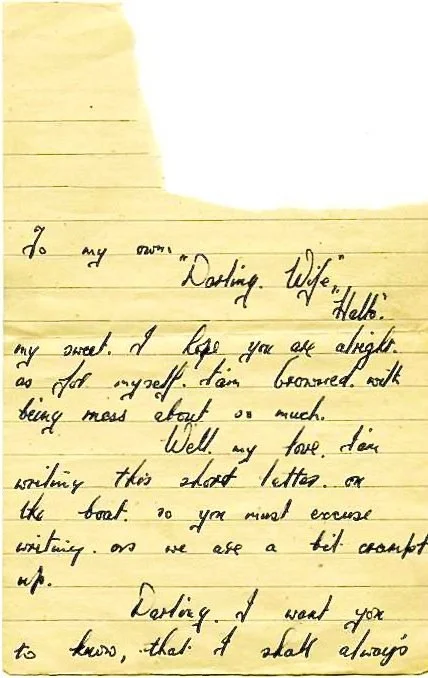 To my own.
"Darling. Wife"
"Hello".
my sweet. I hope you are alright.
as for myself. I'am browned. with
being mess about so much.
Well. my love. I'am
writing this short letter. on
the boat. so you must excuse
writing. as we are a bit crampt
up.
Darling. I want you
to know, that I shall always